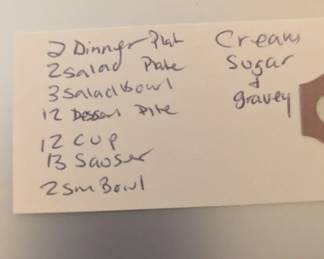 2 Dinner Plat
2 Salad Plate
3 Salad bowl
12 Dessert Plte
12 Cup
13 Sauser
2 sm Bowl
Cream
Sugar
+
gravey